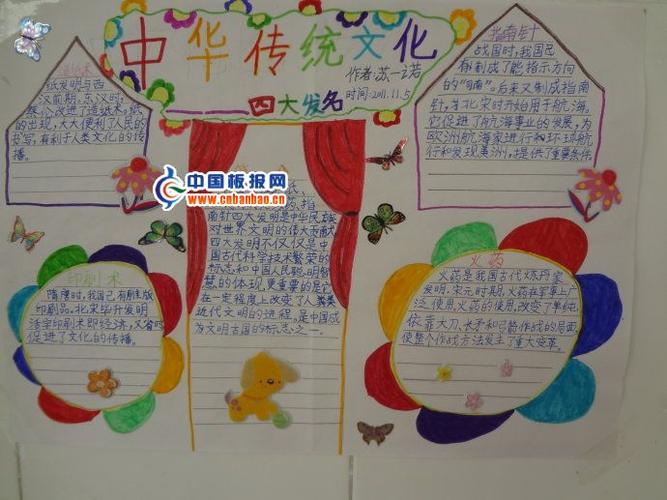 中华传统文化
作者:苏一诺
时间:2011.11.5
四大发名
造纸术
纸发明与西
汉前期，东汉时，
蔡伦改进了造纸术，纸
的出现，大大便利了人民的
书写，有利于人类文化的传
播。
指南针
战国时，我国已
有制成了能指示方向
的“司南”，后来又制成指南
针，并北宋时开始用于航海，
它促进了航海事业的发展，为
欧洲航海家进行和环球航
行和发现美洲，提供了重要条件
中国板报网
www.cnbanbao.cn
指
南针四大发明是中华民族
对世界文明的伟大贡献
四大发明不仅仅是中
国古代科学技术繁荣的
标志和中国人民聪明智
慧的体现，更重要的是它
在一定程度上改变了人类
近代文明的进程，是中国成
为文明古国的标志之一。
印刷术
隋唐时，我国已有雕版
印刷品。北宋毕升发明
活字印刷术即经济，又省时
促进了文化的传播。
火药
火药是我国古代炼丹家
发明，宋元时期，火药在军事上广
泛使用。火药的使用，改变了单纯
依靠大刀、长矛和弓箭作战的局面，
使整个作战方法发生了重大变革。